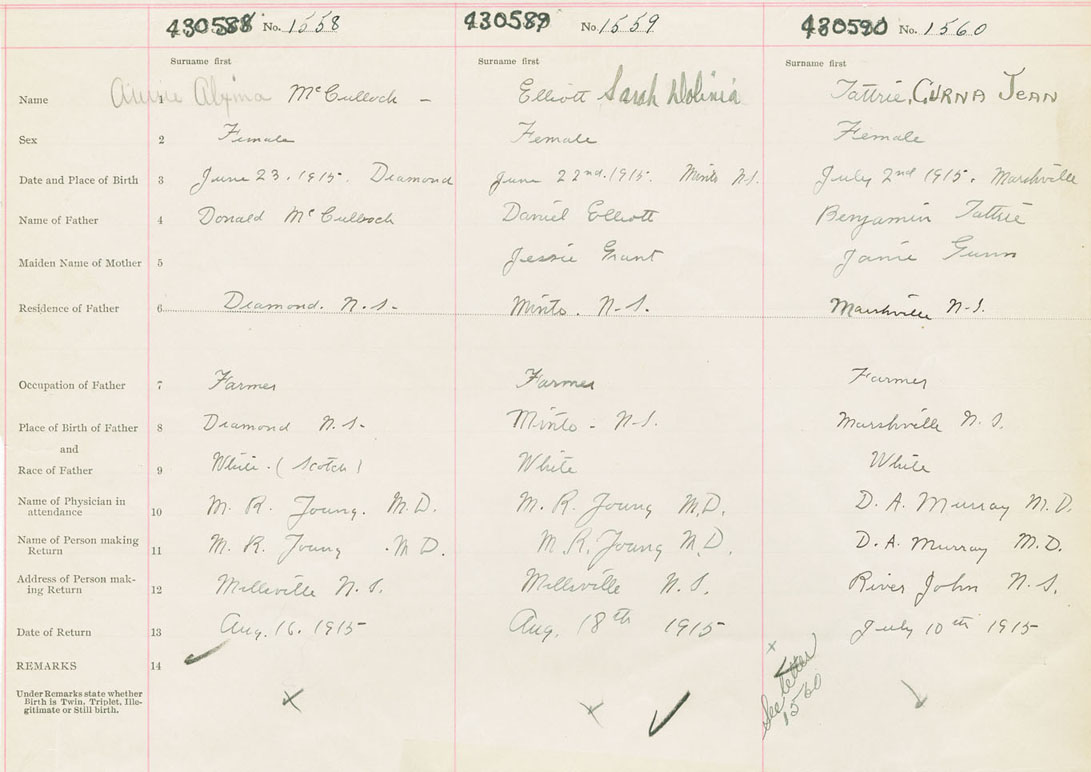 430588 No. 1558 430589 No. 1559 430590 No. 1560
Surname first Surname first Surname first
Name 1 Annie Alxina McCulloch - Elliott Sarah Dolinia Tattrie, GURNA JEAN
Sex 2 Female Female Female
Date and Place of Birth 3 June 23. 1915. Diamond June 22nd. 1915. Minto N.S. July 2nd 1915. Marshville
Name of Father 4 Donald McCulloch Daniel Elliott Benjamin Tattrie
Maiden Name of Mother 5 Jessie Grant Janie Gunn
Residence of Father 6 Diamond. N.S- Minto. N-S. Marshville N-S.
Occupation of Father 7 Farmer Farmer Farmer
Place of Birth of Father 8 Diamond N.S- Minto - N-S. Marshville N.S.
and
Race of Father 9 White. (Scotch) White White
Name of Physician in
attendance 10 M. R. Young. M.D. M. R. Young M.D. D. A. Murray M.D.
Name of Person making
Return 11 M. R. Young .M D. M. R. Young M.D. D. A. Murray M.D.
Address of Person mak-
ing Return 12 Millsville N.S. Millsville N.S. River John N.S.
Date of Return 13 Aug. 16. 1915 Aug. 18th 1915 July 10th 1915
REMARKS 14
Under Remarks state whether
Birth is Twin, Triplet, Ille-
gitimate or Still birth.
x
See letter
1560